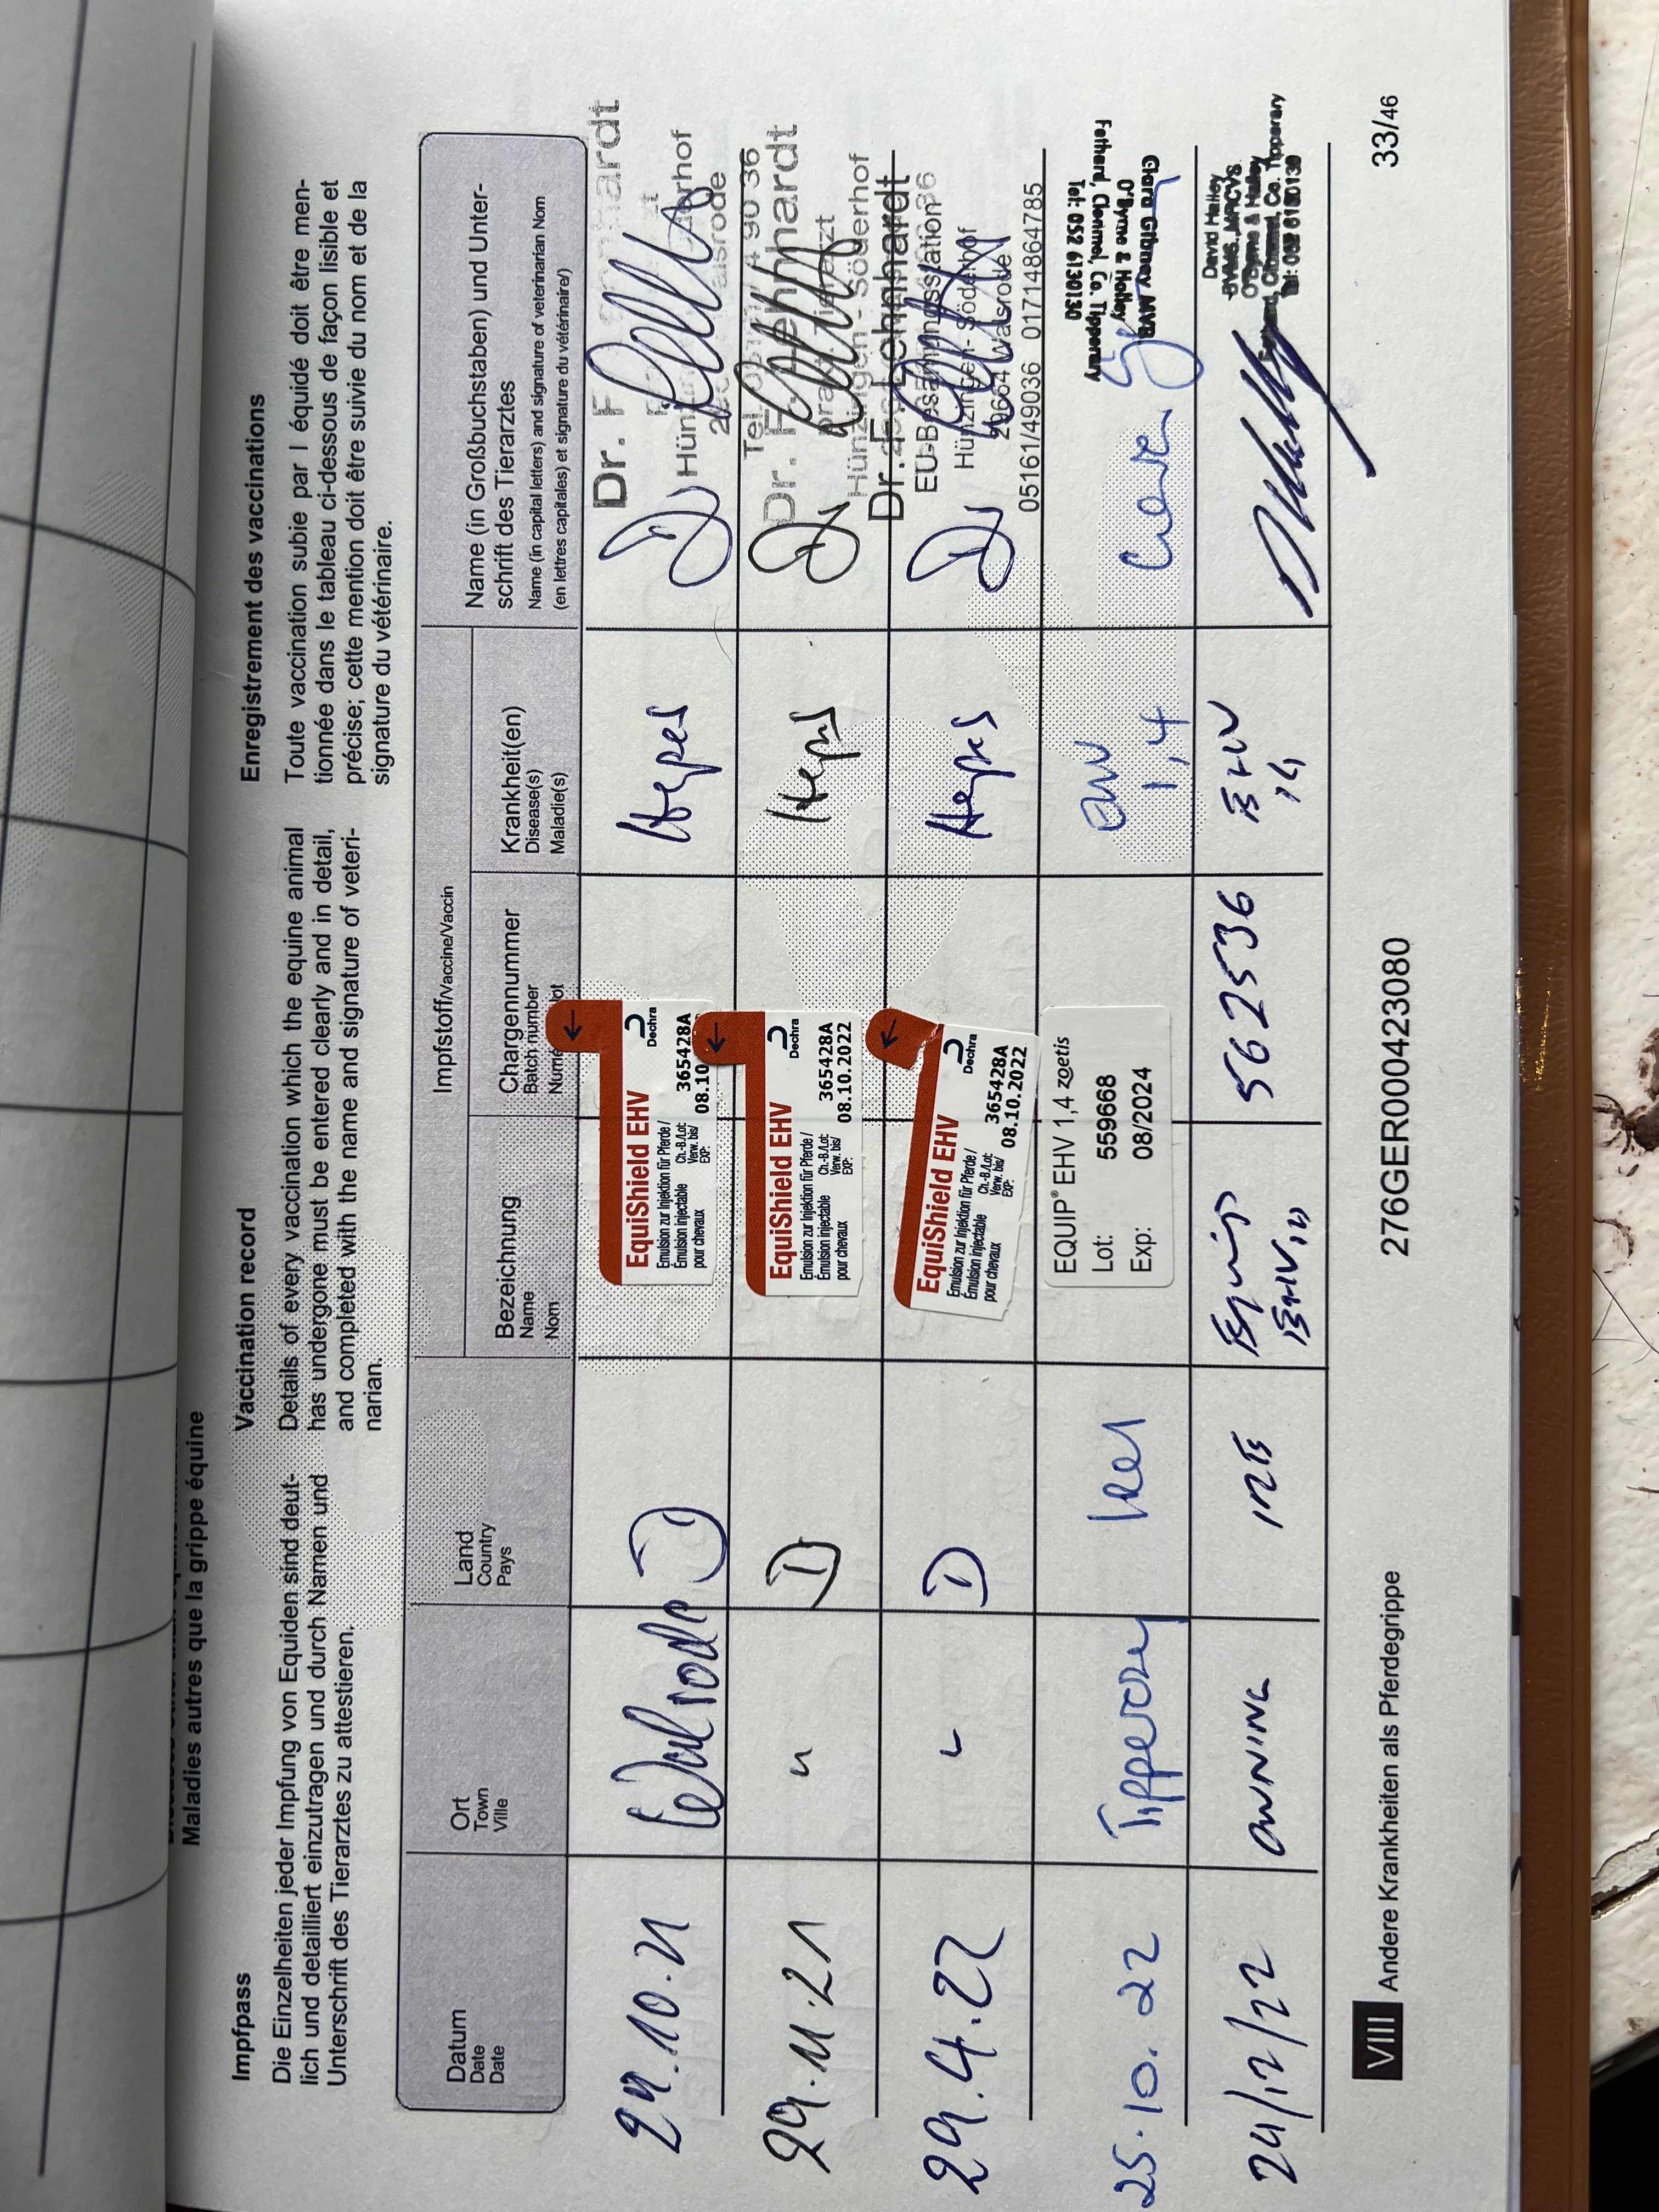 Maladies autres que la grippe équine
Impfpass
Die Einzelheiten jeder Impfung von Equiden sind deut-
lich und detailliert einzutragen und durch Namen und
Unterschrift des Tierarztes zu attestieren.
Vaccination record
Details of every vaccination which the equine animal
has undergone must be entered clearly and in detail,
and completed with the name and signature of veteri-
narian.
Enregistrement des vaccinations
Toute vaccination subie par l équidé doit être men-
tionnée dans le tableau ci-dessous de façon lisible et
précise; cette mention doit être suivie du nom et de la
signature du vétérinaire.
Datum
Date
Date
Ort
Town
Ville
Land
Country
Pays
Impfstoff/Vaccine/Vaccin
Bezeichnung
Name
Nom
Chargennummer
Batch number
Krankheit(en)
Disease(s)
Maladie(s)
Name (in Großbuchstaben) und Unter-
schrift des Tierarztes
Name (in capital letters) and signature of veterinarian Nom
(en lettres capitales) et signature du vétérinaire/)
29.10.21
Walsrode
D
EquiShield EHV
Emulsion zur Injektion für Pferde /
Émulsion injectable
pour chevaux
Ch.-B./Lot:
Verw. bis/
EXP:
365428A
08.10
Dechra
Herpes
Dr. F
29.11.21
"
D
EquiShield EHV
Emulsion zur Injektion für Pferde /
Émulsion injectable
pour chevaux
Ch.-B./Lot:
Verw. bis/
EXP:
365428A
08.10.2022
Dechra
Herpes
Hünzingen - Söderhof
29.4.22
"
D
EquiShield EHV
Emulsion zur Injektion für Pferde /
Émulsion injectable
pour chevaux
Ch.-B./Lot:
Verw. bis/
EXP:
365428A
08.10.2022
Dechra
Herpes
Dr. F. Lehnhardt
EU-Besamungsstation
Hünzingen - Söderhof
29664 Walsrode
05161/49036 01714864785
25.10.22
Tipperary
Irel
EQUIP® EHV 1,4 zoetis
Lot: 559668
Exp: 08/2024
EHV
1,4
MVB
O'Byrne & Halley
Fethard, Clonmel, Co. Tipperary
Tel: 052 6130130
24/12/22
OWNING
IRE
Equip
EHV1,4
562536
EHV
14
David Halley
MRCVS
O'Byrne & Halley
Fethard, Clonmel, Co. Tipperary
Tel: 052 6130130
VIII Andere Krankheiten als Pferdegrippe
276GER000423080
33/46